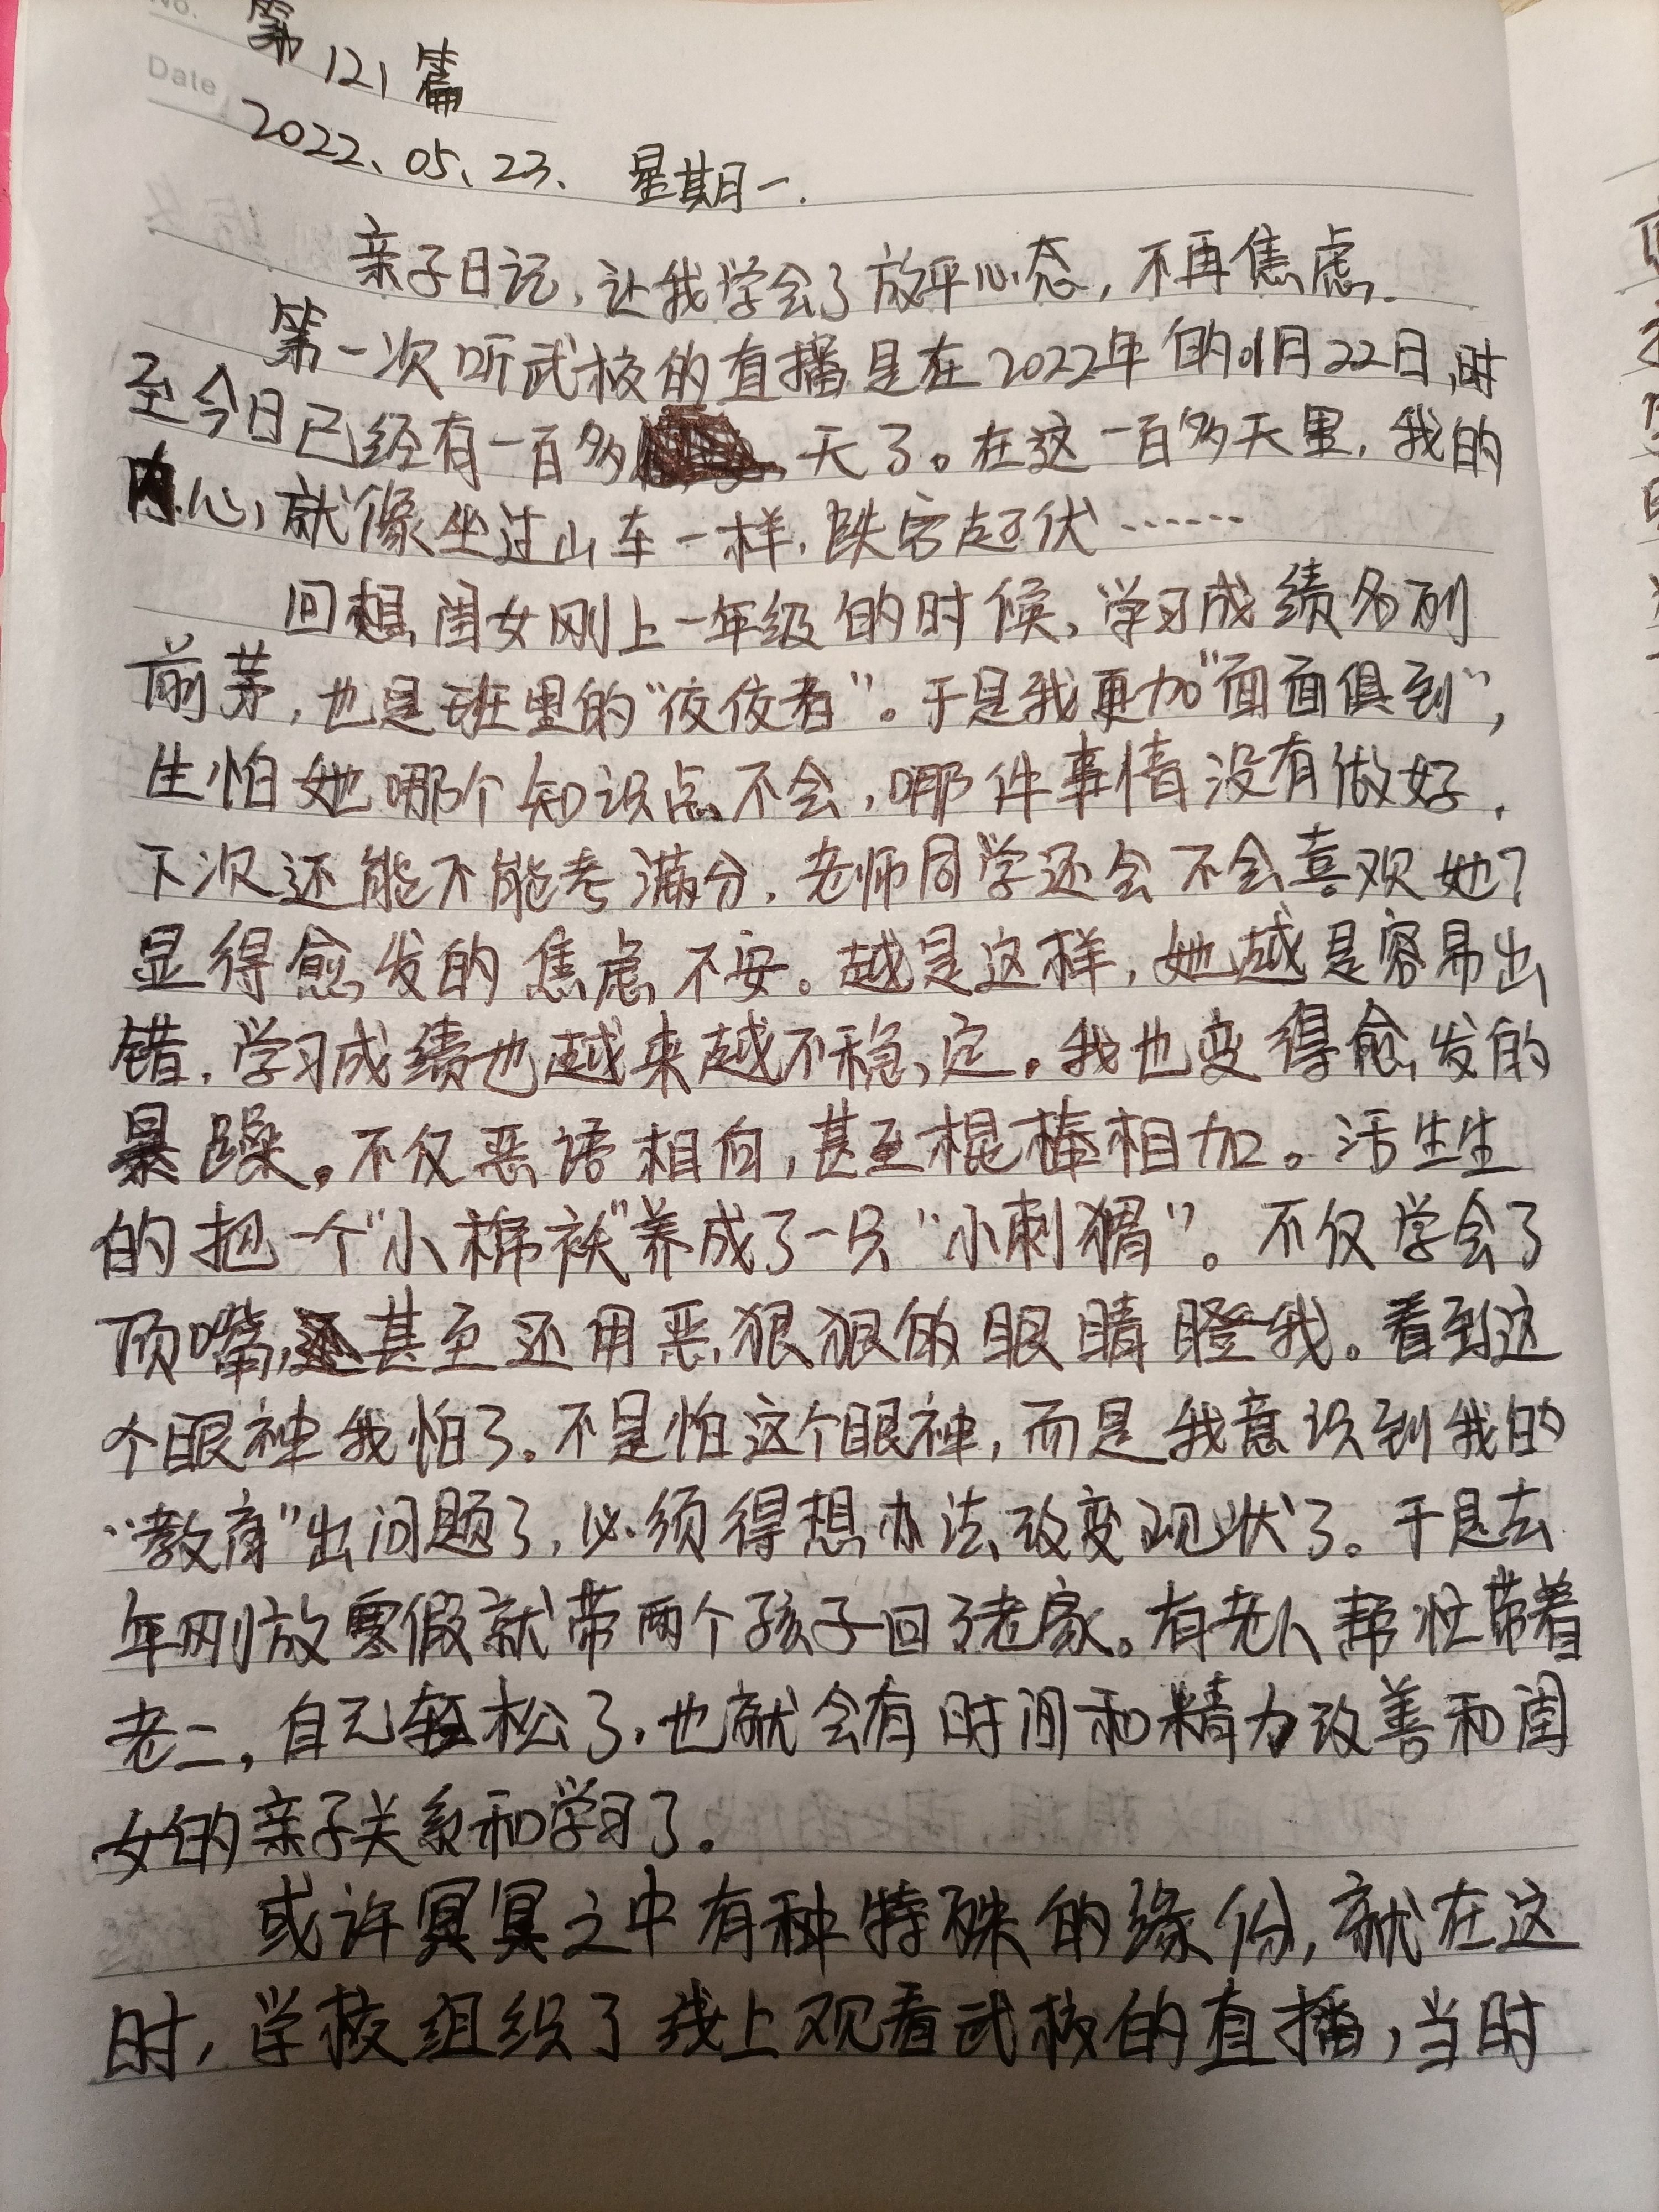 No.
第121篇
Date
2022、05、23、 星期一.
亲子日记,让我学会了放平心态,不再焦虑.
第一次听武校的直播是在2022年的01月22日,时
至今日已经有一百多天了。在这一百多天里,我的
内心,就像坐过山车一样,跌宕起伏……
回想闺女刚上一年级的时候,学习成绩名列
前茅,也是班里的“佼佼者”。于是我更加“面面俱到”,
生怕她哪个知识点不会,哪件事情没有做好,
下次还能不能考满分,老师同学还会不会喜欢她?
显得愈发的焦虑不安。越是这样,她越是容易出
错,学习成绩也越来越不稳定。我也变得愈发的
暴躁。不仅恶语相向,甚至棍棒相加。活生生
的把一个“小棉袄”养成了一只“小刺猬”。不仅学会了
顶嘴,甚至还用恶狠狠的眼睛瞪我。看到这
个眼神我怕了。不是怕这个眼神,而是我意识到我的
“教育”出问题了,必须得想办法改变现状了。于是去
年刚放寒假就带两个孩子回了老家。有老人帮忙带着
老二,自己轻松了,也就会有时间和精力改善和闺
女的亲子关系和学习了。
或许冥冥之中有种特殊的缘份,就在这
时,学校组织了线上观看武校的直播,当时